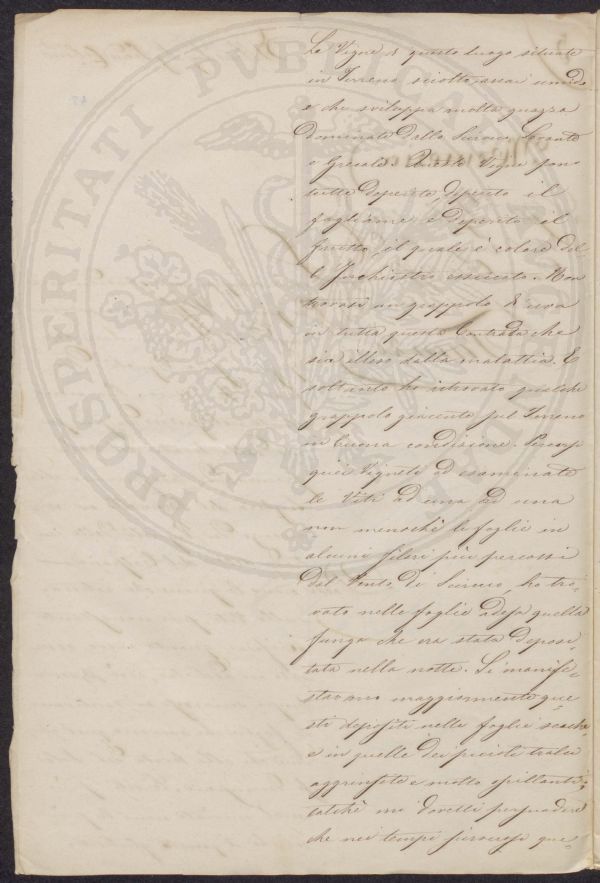 Le Vigne di questo luogo situate
in Terreno sciolto, assai umido
e che sviluppa molta guazza
dominato dallo Scirocco, Levante
e Grecale. Queste Vigne sono
tutte deperite, deperito il
fogliame e deperito il
frutto, il quale è colore del-
l'Inchiostro essiccato. Non
trovasi un grappolo d'uva
in tutta questa Contrada che
sia illeso dalla malattia. E
soltanto ho ritrovato qualche
grappolo giacente sul Terreno
in buona condizione. Percorsi
quei Vigneti ed esaminate
le Viti ad una ad una
non menochè le foglie in
alcuni filari più percossi
dal Vento di Scirocco, ho tro-
vato nelle foglie adesa quella
funga che era stata deposi-
tata nella notte. Si manife-
stavano maggiormente que-
sti depositi nelle foglie secche
e in quelle dei piccoli tralci
aggrinzite e molto
talchè mi dovetti persuadere
che nei tempi sciroccosi que-
PROSPERITATI PVBLICAE